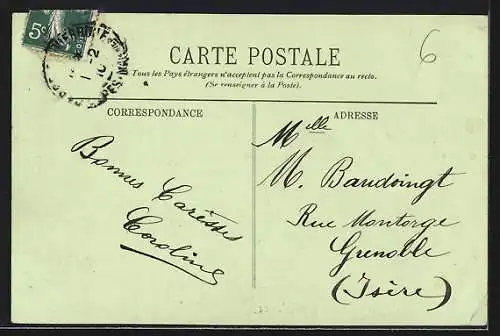 5c
6
CARTE POSTALE
Tous les Pays étrangers n'acceptent pas la Correspondance au recto.
(Se renseigner à la Poste).
CORRESPONDANCE
ADRESSE
Bonnes Caresses
Caroline
Melle
M. Baudoingt
Rue Montorge
Grenoble
(Isère)